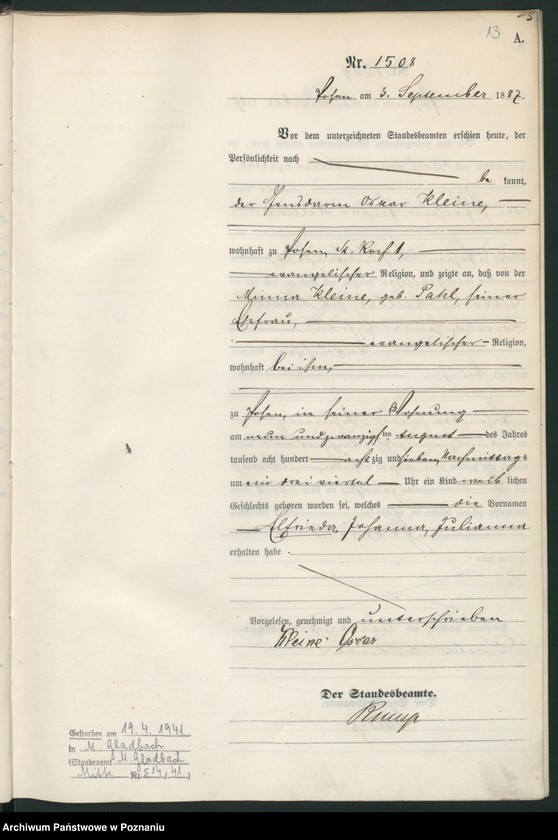 13
A.
Nr. 1508
Posen am 3. September 1887.
Vor dem unterzeichneten Standesbeamten erschien heute, der
Persönlichkeit nach
be kannt,
der Gensdarm Oskar Kleine,
wohnhaft zu Posen, St. Roch 1,
evangelischer Religion, und zeigte an, daß von der
Minna Kleine, geb. Pahl, seiner
Ehefrau,
evangelischer Religion,
wohnhaft bei ihm,
zu Posen, in seiner Wohnung
am neun und zwanzigsten August des Jahres
tausend acht hundert acht zig und sieben, Nachmittags
um ein dreiviertel Uhr ein Kind weib lichen
Geschlechts geboren worden sei, welches die Vornamen
Elfrieda, Johanna, Julianna
erhalten habe.
Vorgelesen, genehmigt und unterschrieben
Kleine Oscar
Der Standesbeamte.
Gestorben am 19. 4. 1941
in M. Gladbach
(Standesamt M. Gladbach
Mitte Nr. 514/41)
Archiwum Państwowe w Poznaniu